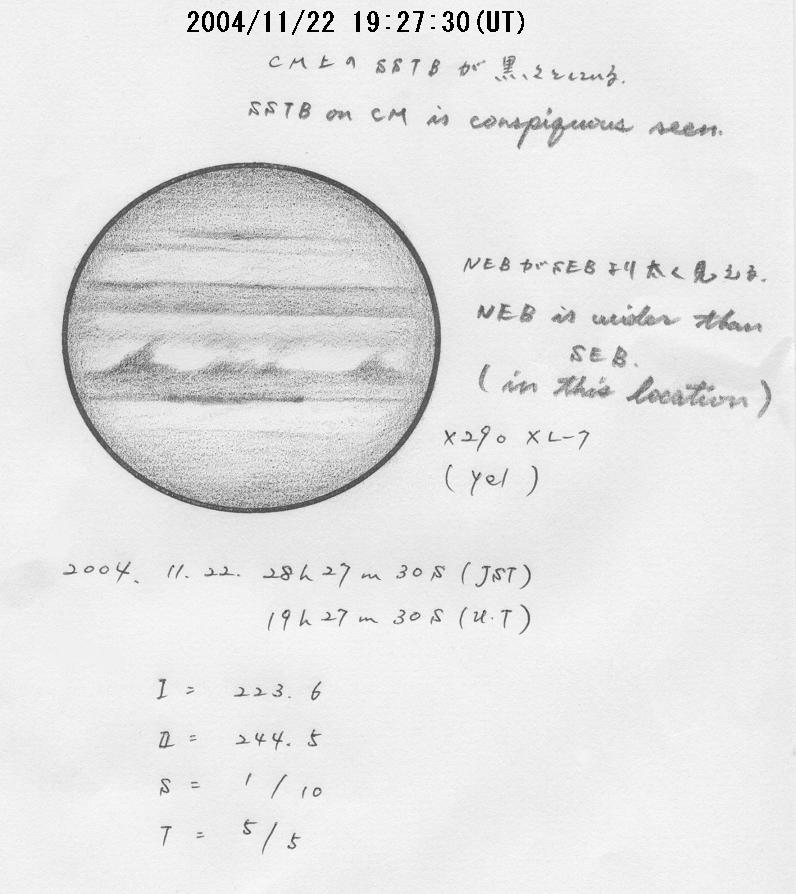 2004/11/22 19:27:30(UT)
CM上の SSTB が 黒々としている.
SSTB on CM is conspiquous seen.
NEBがSEBより太く見える.
NEB is wider than
SEB.
(in this location)
×290 XL-7
(Yel)
2004. 11. 22. 28h 27m 30S (JST)
19h 27m 30S (U.T)
I = 223.6
II = 244.5
S = 1/10
T = 5/5